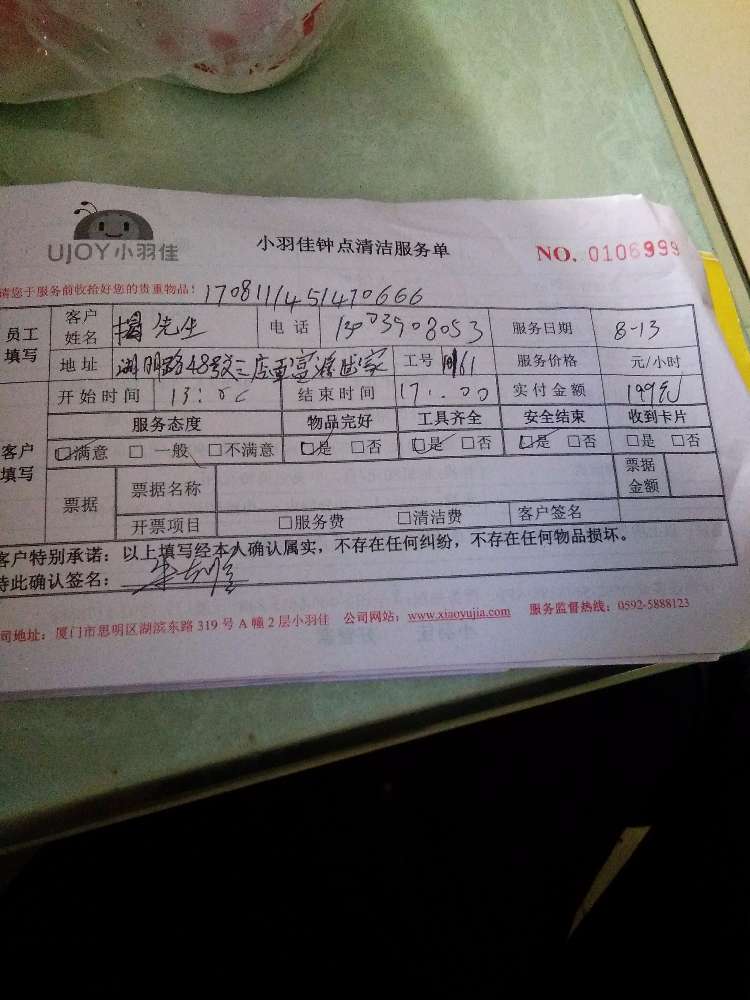 UJOY小羽佳
小羽佳钟点清洁服务单
NO. 0106999
请您于服务前收拾好您的贵重物品! 1708111451470666
员工填写 客户姓名 先生 电话 服务日期 8-13
地址 湖明路48号 工号 服务价格 元/小时
开始时间 13:00 结束时间 17:00 实付金额 199元
客户填写 服务态度 物品完好 工具齐全 安全结束 收到卡片
☑满意 □一般 □不满意 ☑是 □否 ☑是 □否 ☑是 □否 □是 □否
票据 票据名称 票据金额
开票项目 □服务费 □清洁费 客户签名
客户特别承诺:以上填写经本人确认属实,不存在任何纠纷,不存在任何物品损坏。
特此确认签名:
司地址:厦门市思明区湖滨东路319号A幢2层小羽佳 公司网站:www.xiaoyujia.com 服务监督热线:0592-5888123